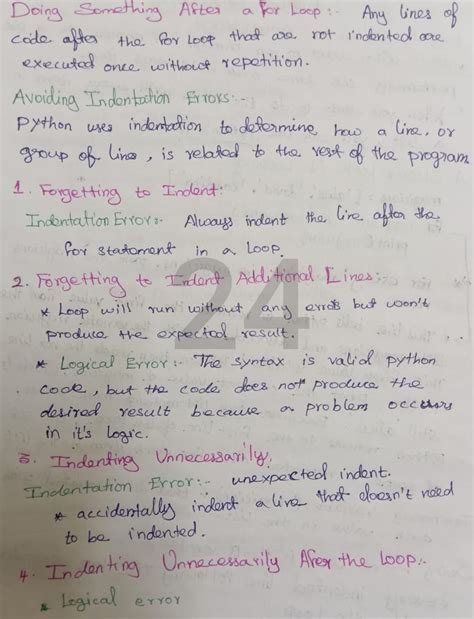 Doing Something After a for Loop:- Any lines of
code after the for loop that are not indented are
executed once without repetition.
Avoiding Indentation Errors:-
Python uses indentation to determine how a line, or
group of lines, is related to the rest of the program
1. Forgetting to Indent:
Indentation Error:- Always indent the line after the
for statement in a loop.
2. Forgetting to Indent Additional Lines:-
* Loop will run without any errors but won't
produce the expected result.
* Logical Error:- The syntax is valid python
code, but the code does not produce the
desired result because a problem occurs
in it's logic.
3. Indenting Unnecessarily,
Indentation Error:- unexpected indent.
* accidentally indent a line that doesn't need
to be indented.
4. Indenting Unnecessarily Afer the loop:-
* Logical error
24